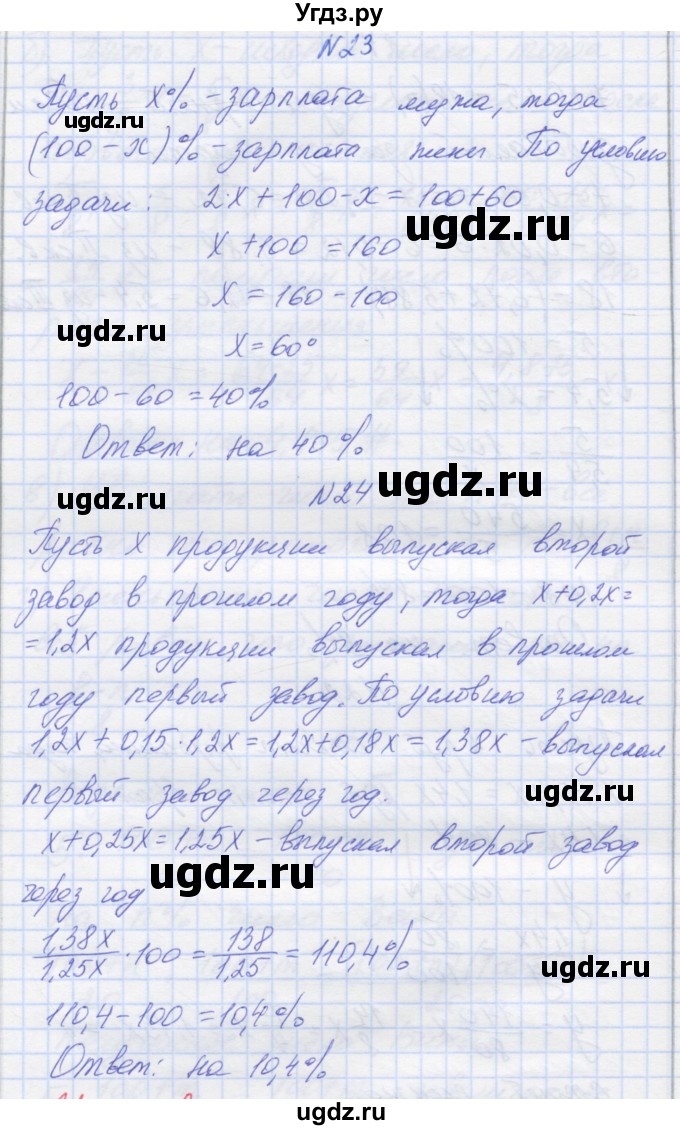 Угдз.ру
N23
Пусть x% - зарплата мужа, тогда
ugdz.ru
(100 - x)% - зарплата жены По условию
задачи: 2·x + 100 - x = 100+60
ugdz.ru
x + 100 = 160
x = 160 - 100
ugdz.ru
x = 60°
100 - 60 = 40%
Ответ: на 40%
ugdz.ru
ugdz.ru
N24
Пусть x продукции выпускал второй
завод в прошлом году, тогда x+0,2x=
= 1,2x продукции выпускал в прошлом
ugdz.ru
году первый завод. По условию задачи
1,2x + 0,15·1,2x = 1,2x+0,18x = 1,38x - выпускал
первый завод через год.
ugdz.ru
x+0,25x = 1,25x - выпускал второй завод
через год
ugdz.ru
1,38x/1,25x · 100 = 138/1,25 = 110,4%
ugdz.ru
110,4 - 100 = 10,4%
Ответ: на 10,4%
ugdz.ru
ugdz.ru